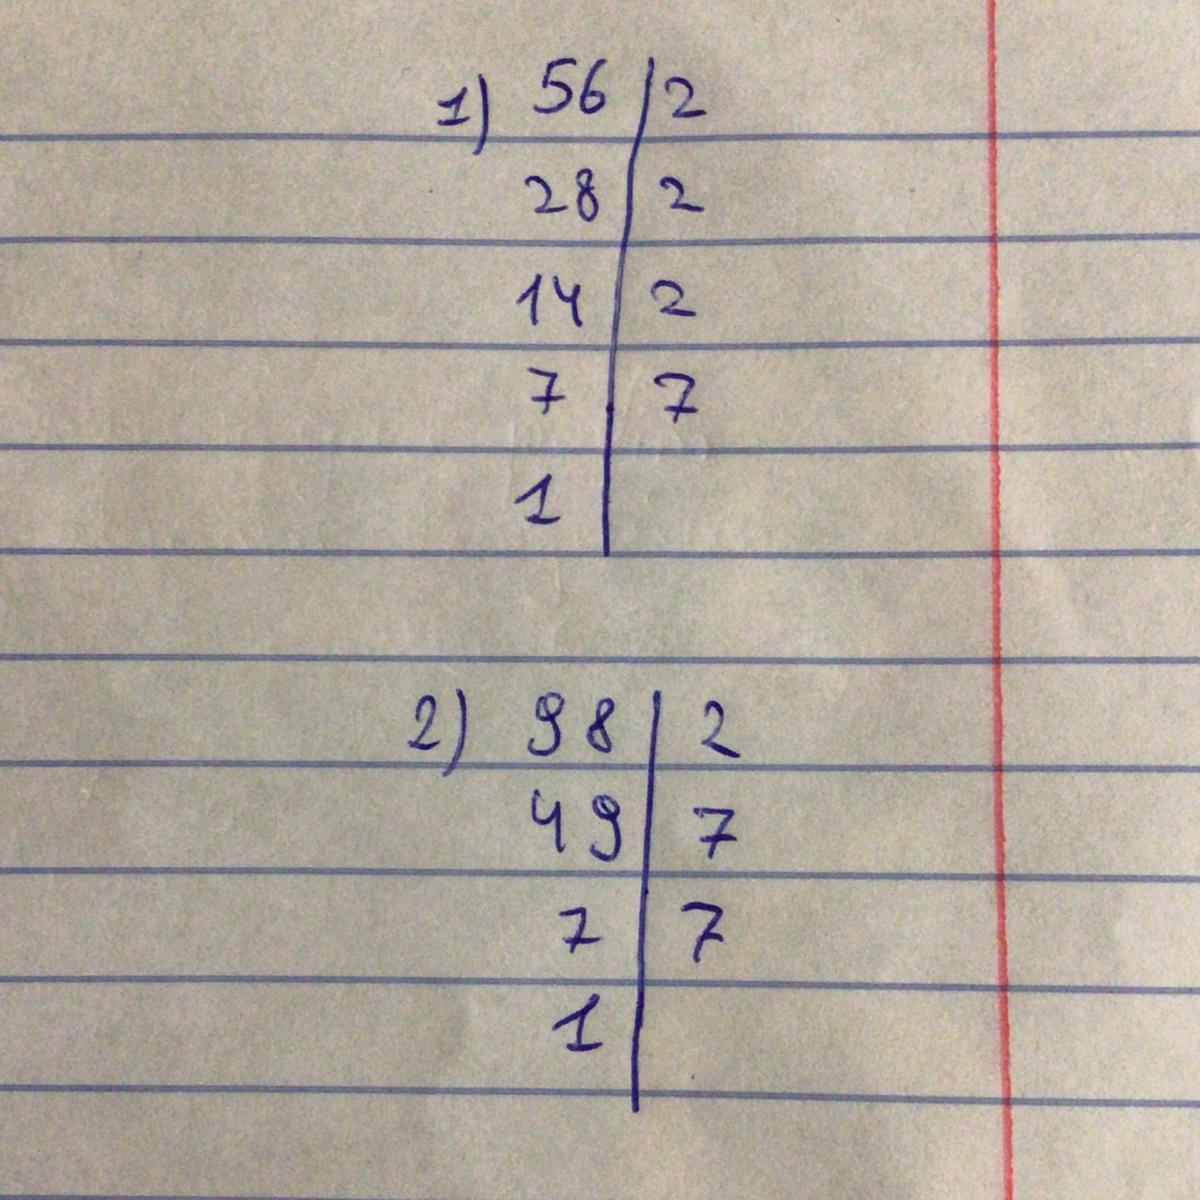 1) 56 | 2
28 | 2
14 | 2
7 | 7
1 |
2) 98 | 2
49 | 7
7 | 7
1 |